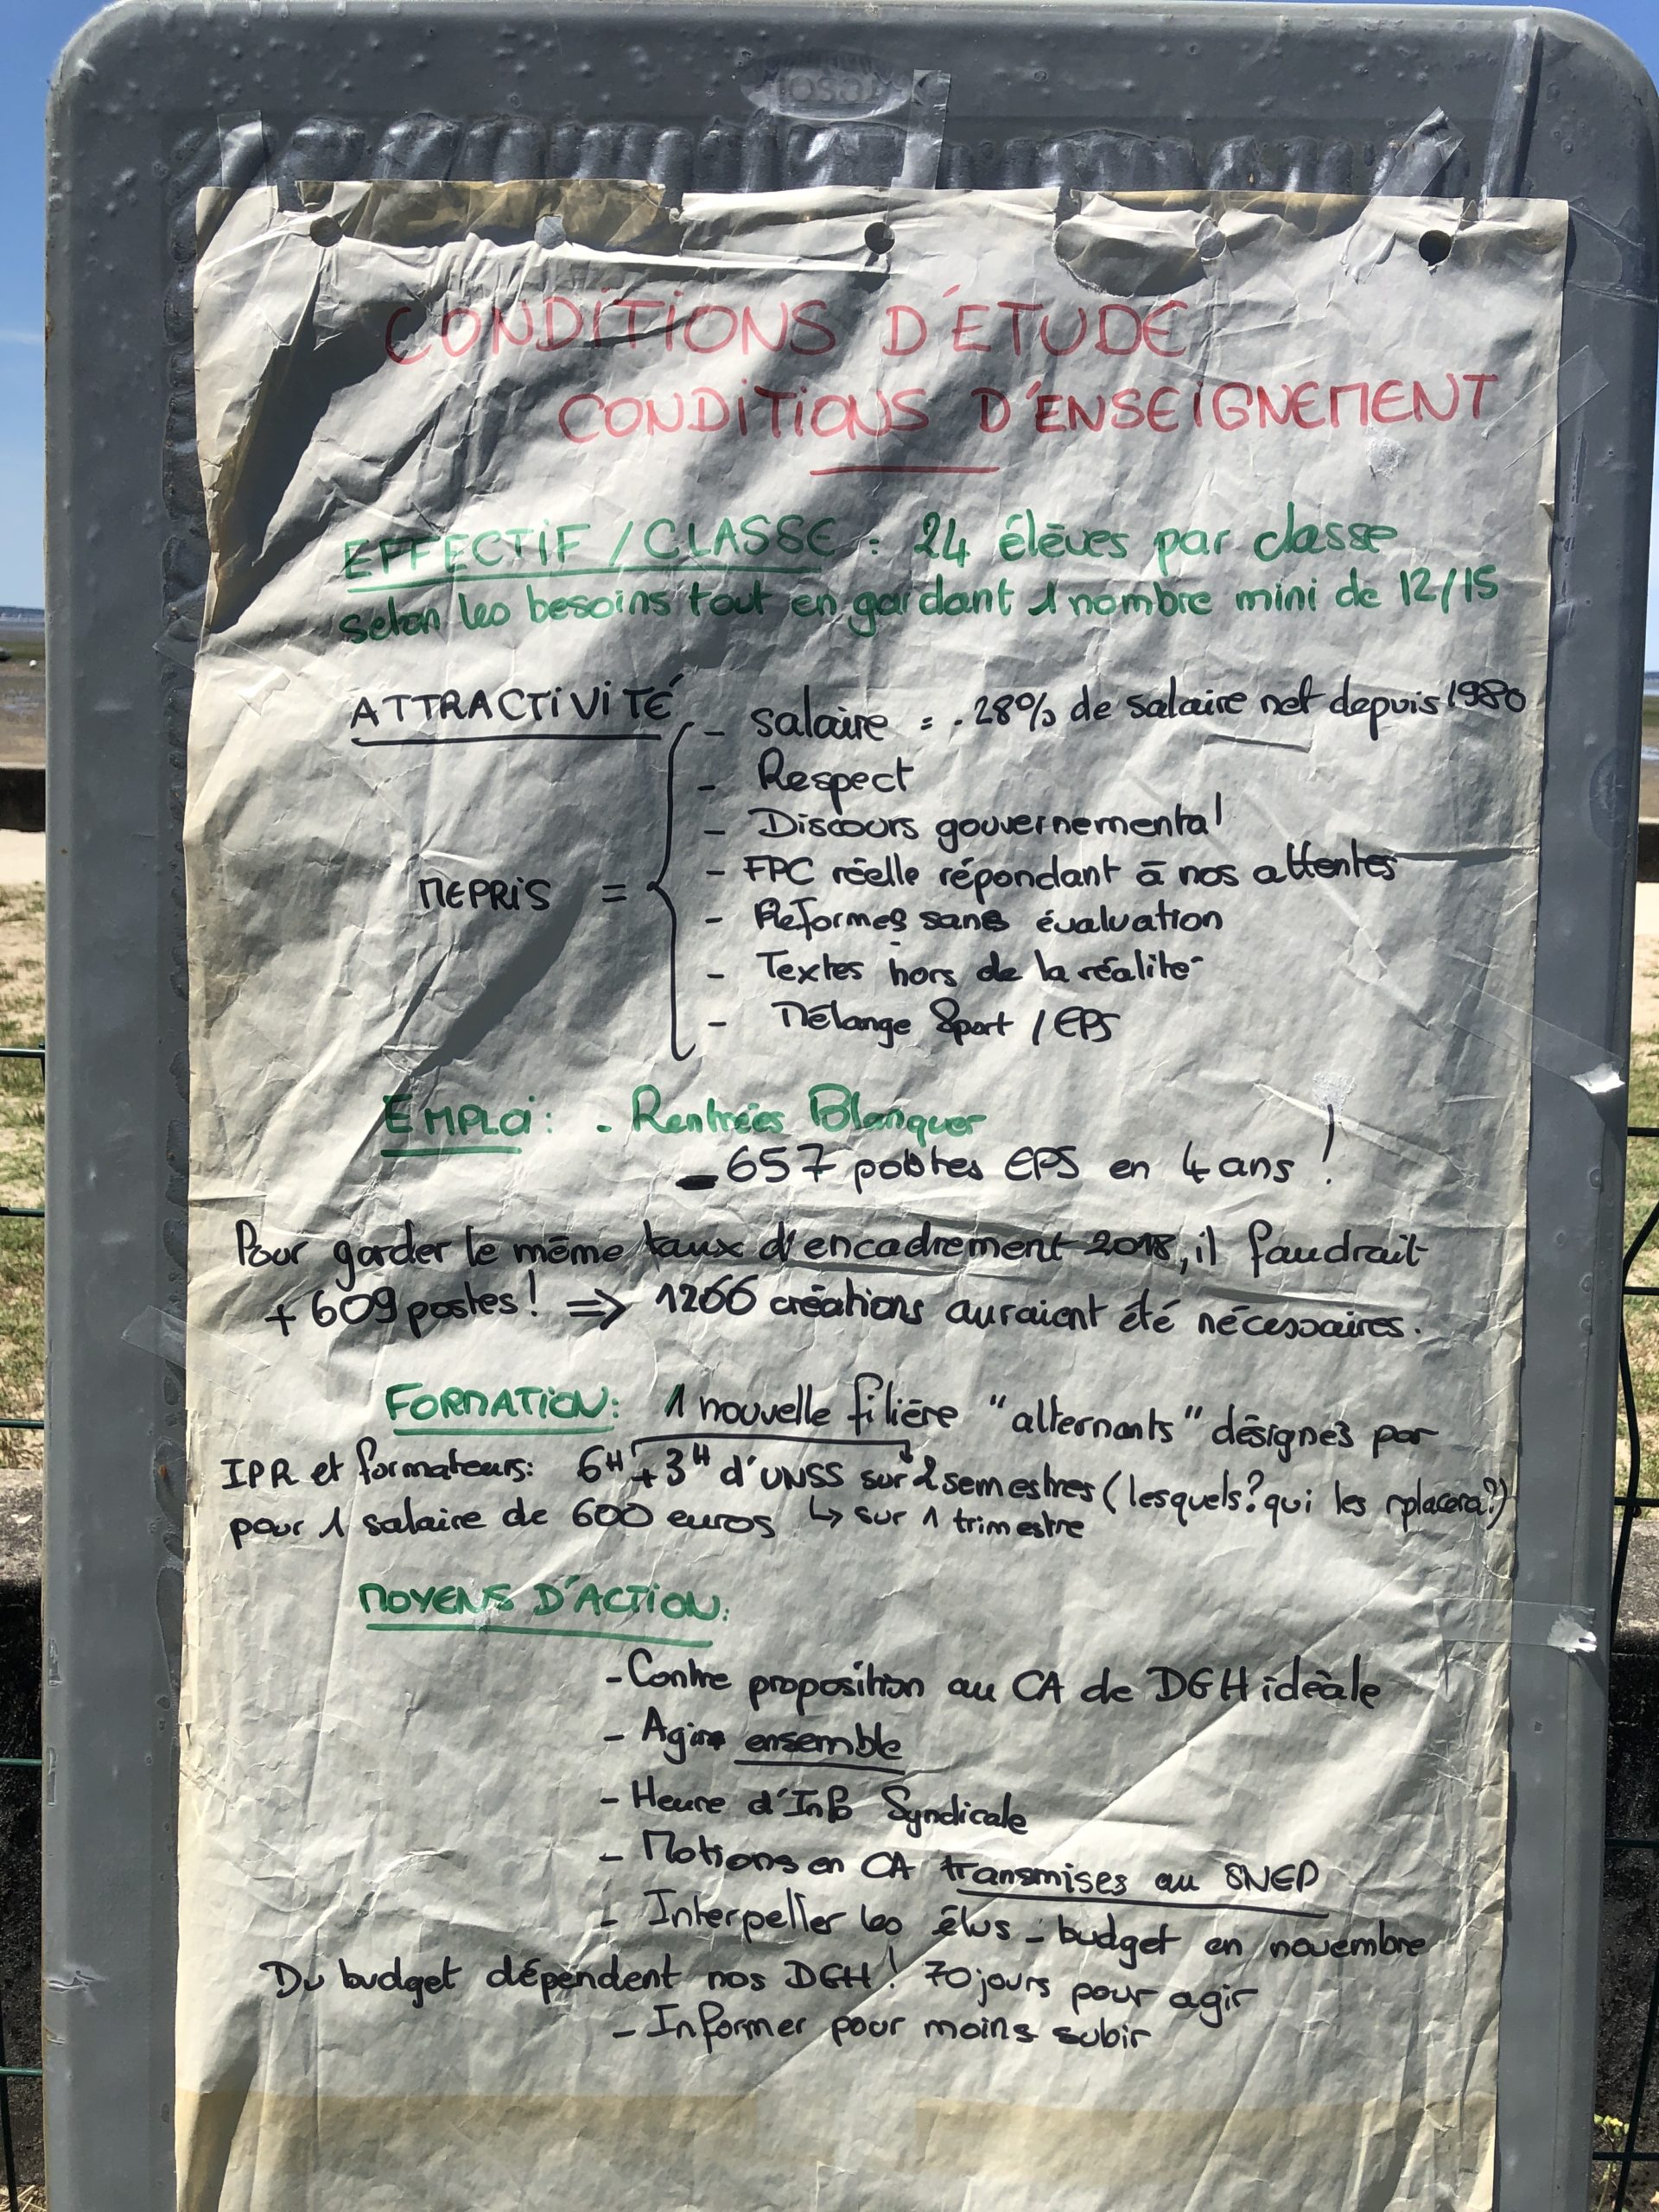 CONDITIONS D'ÉTUDE
CONDITIONS D'ENSEIGNEMENT
EFFECTIF / CLASSE : 24 élèves par classe
selon les besoins tout en gardant 1 nombre mini de 12/15
ATTRACTIVITÉ
- salaire = -28% de salaire net depuis 1980
- Respect
- Discours gouvernemental
- FPC réelle répondant à nos attentes
MEPRIS =
- Réformes sans évaluation
- Textes hors de la réalité
- Mélange Sport / EPS
EMPLOI : - Rentrées Blanquer
- 657 postes EPS en 4 ans !
Pour garder le même taux d'encadrement 2018, il faudrait
+ 609 postes ! => 1266 créations auraient été nécessaires.
FORMATION : 1 nouvelle filière "alternants" désignés par
IPR et formateurs : 6H + 3H d'UNSS sur 2 semestres (lesquels ? qui les rplacera ?)
pour 1 salaire de 600 euros ↳ sur 1 trimestre
MOYENS D'ACTION :
- Contre proposition au CA de DGH idéale
- Agir ensemble
- Heure d'Info Syndicale
- Motions en CA transmises au SNEP
- Interpeller les élus - budget en novembre
Du budget dépendent nos DGH ! 70 jours pour agir
- Informer pour moins subir